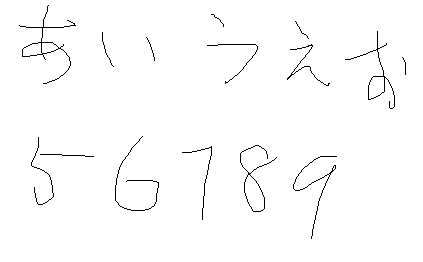 あいうえお
56789